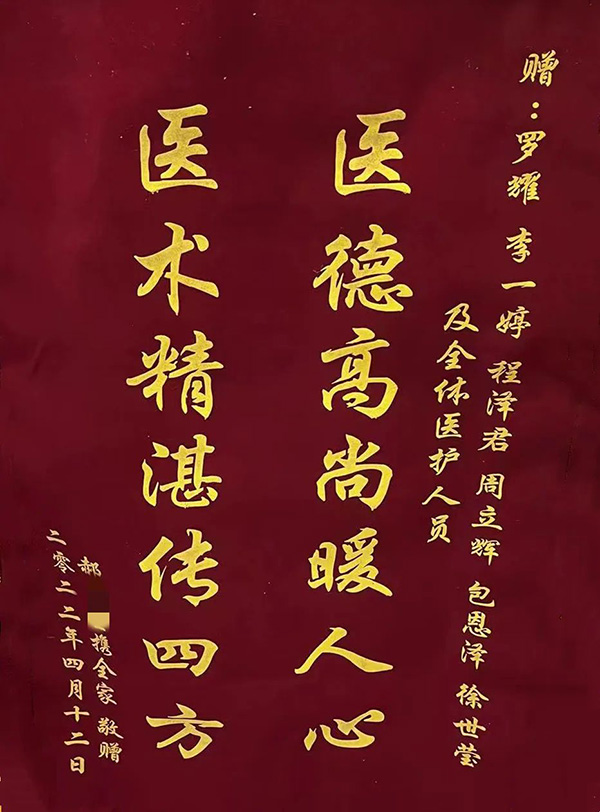 赠：罗耀 李一婷 程泽君 周立辉 包恩泽 徐世莹
及全体医护人员
医德高尚暖人心
医术精湛传四方
郝 携全家 敬赠
二零二二年四月十二日